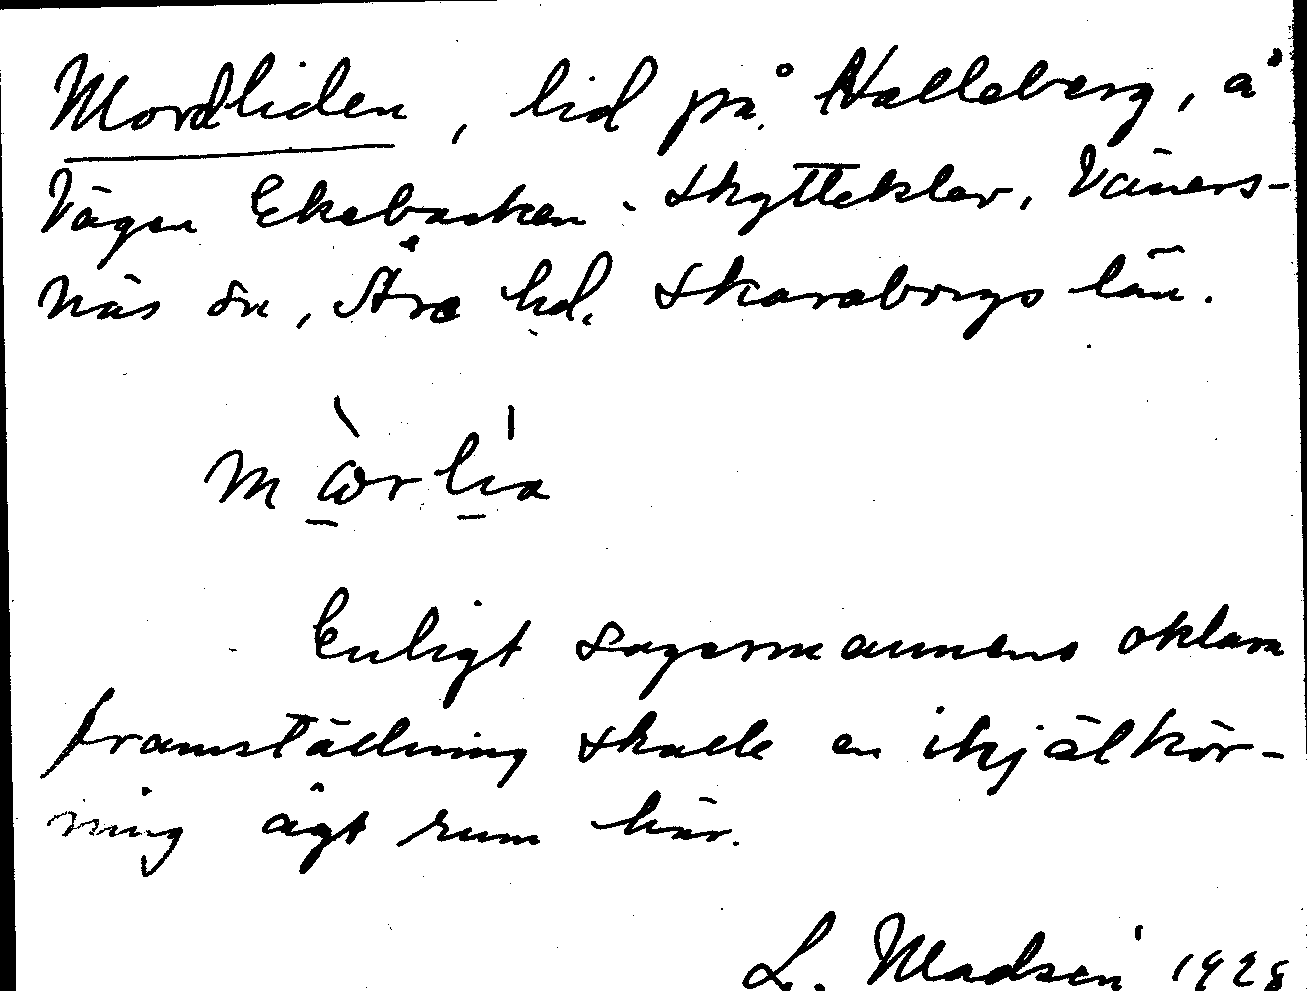 Mordliden, lid på Halleberg, å
vägen Ekebacken - Skytteklev, Väners-
näs sn, Åse hd. Skaraborgs län.
Enligt sagesmannens oklara
framställning skulle en ihjälkör-
ning ägt rum här.
L. Madsén 1928